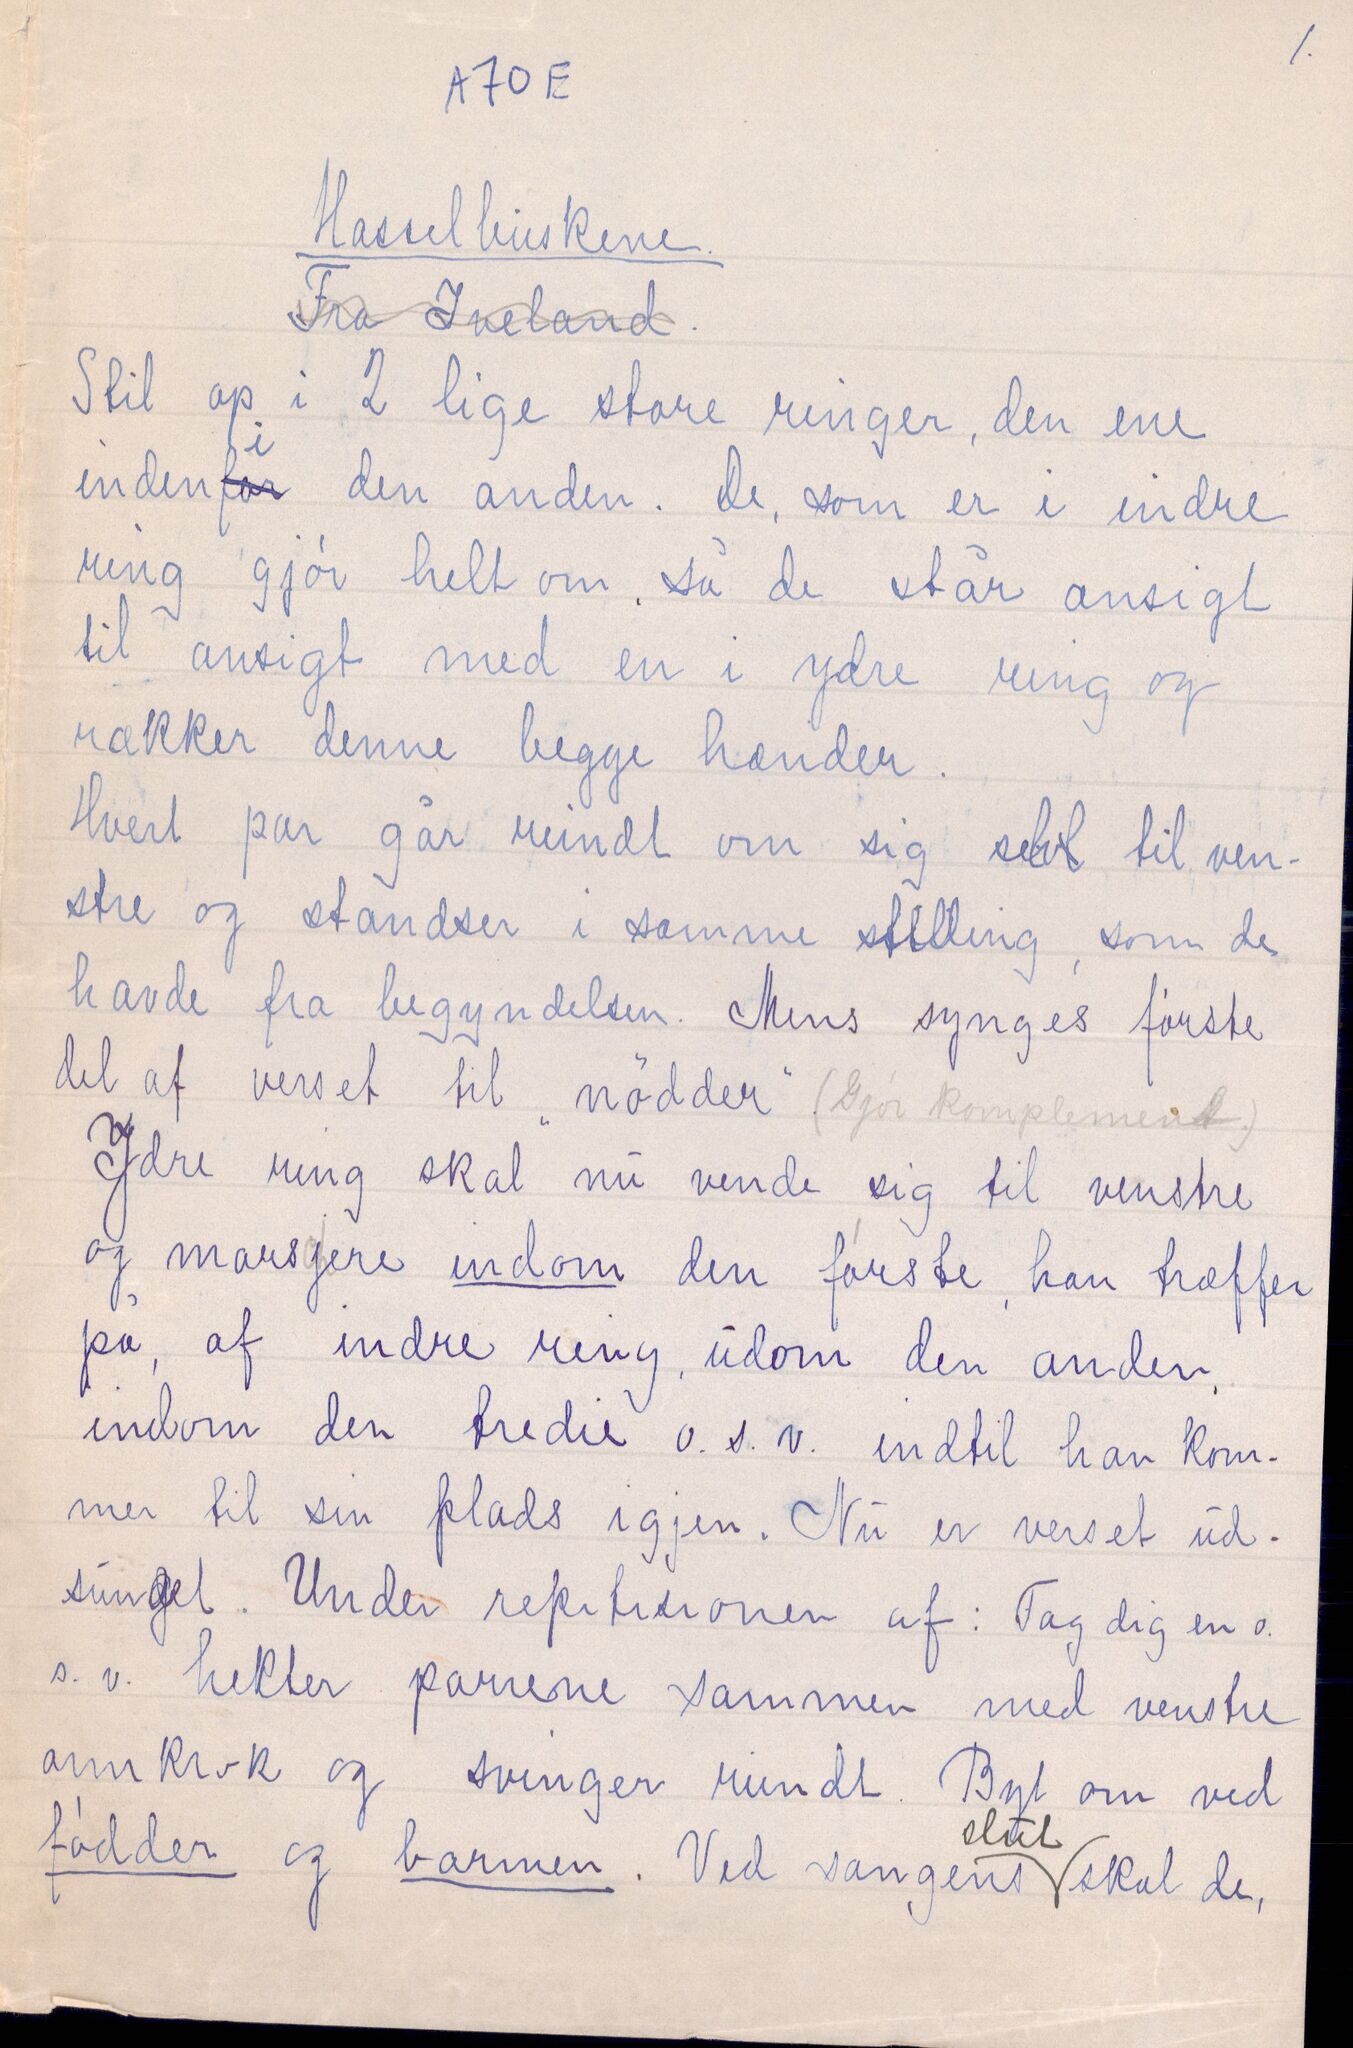 1.
A70E
Hasselbuskene.
Fra Iveland.
Stil op i 2 lige store ringer, den ene
i
indenfor den anden. De, som er i indre
ring gjór helt om, så de står ansigt
til ansigt med en i ydre ring og
rækker denne begge hænder.
Hvert par går rundt om sig selv til ven-
stre og standser i samme stilling, som de
havde fra begyndelsen. Mens synges fórste
del af verset til "nödder" (Gjór kompliment.)
Ydre ring skal nu vende sig til venstre
og marsjere indom den fórste, han træffer
på, af indre ring, udom den anden,
indom den tredie o. s. v. indtil han kom-
mer til sin plads igjen. Nu er verset ud-
sunget. Under repitisionen af: Tag dig en o.
s. v. hekter parrene sammen med venstre
armkrok og svinger rundt. Byt om ved
slut
fódder og barmen. Ved sangens skal de,